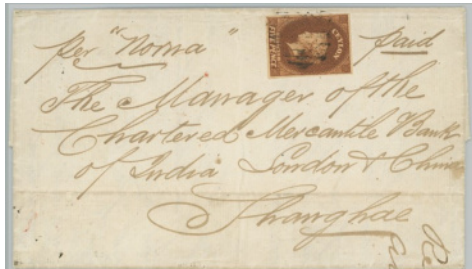 per "Norna" paid
CEYLON
The Manager of the
Chartered Mercantile Bank
of India London & China
Shanghae